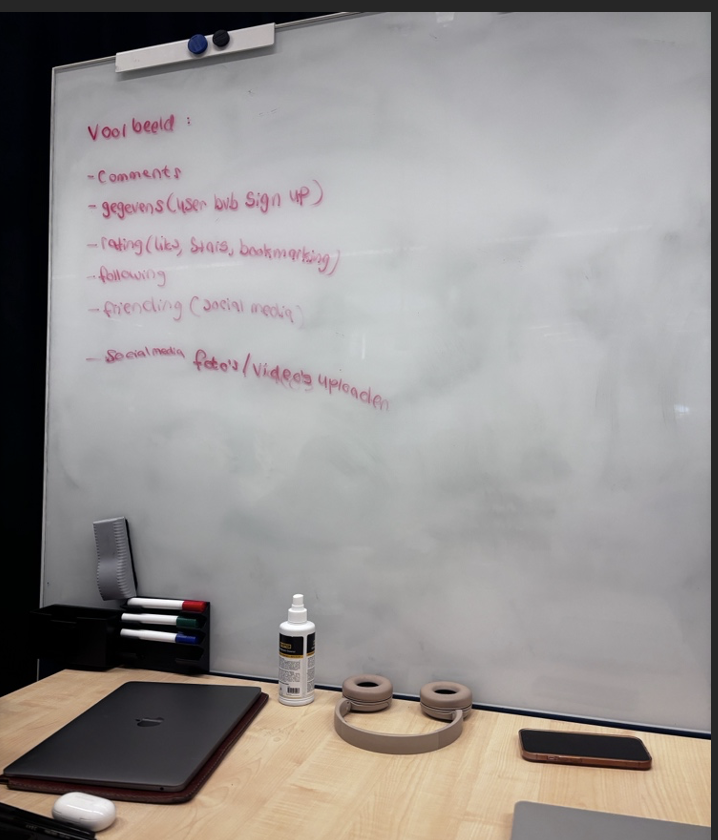 Voolbeeld :
- Comments
- gegevens (user bvb Sign up)
- rating (like, Stars, bookmarking)
- following
- friending (social media)
- Social media foto's / video's uploaden